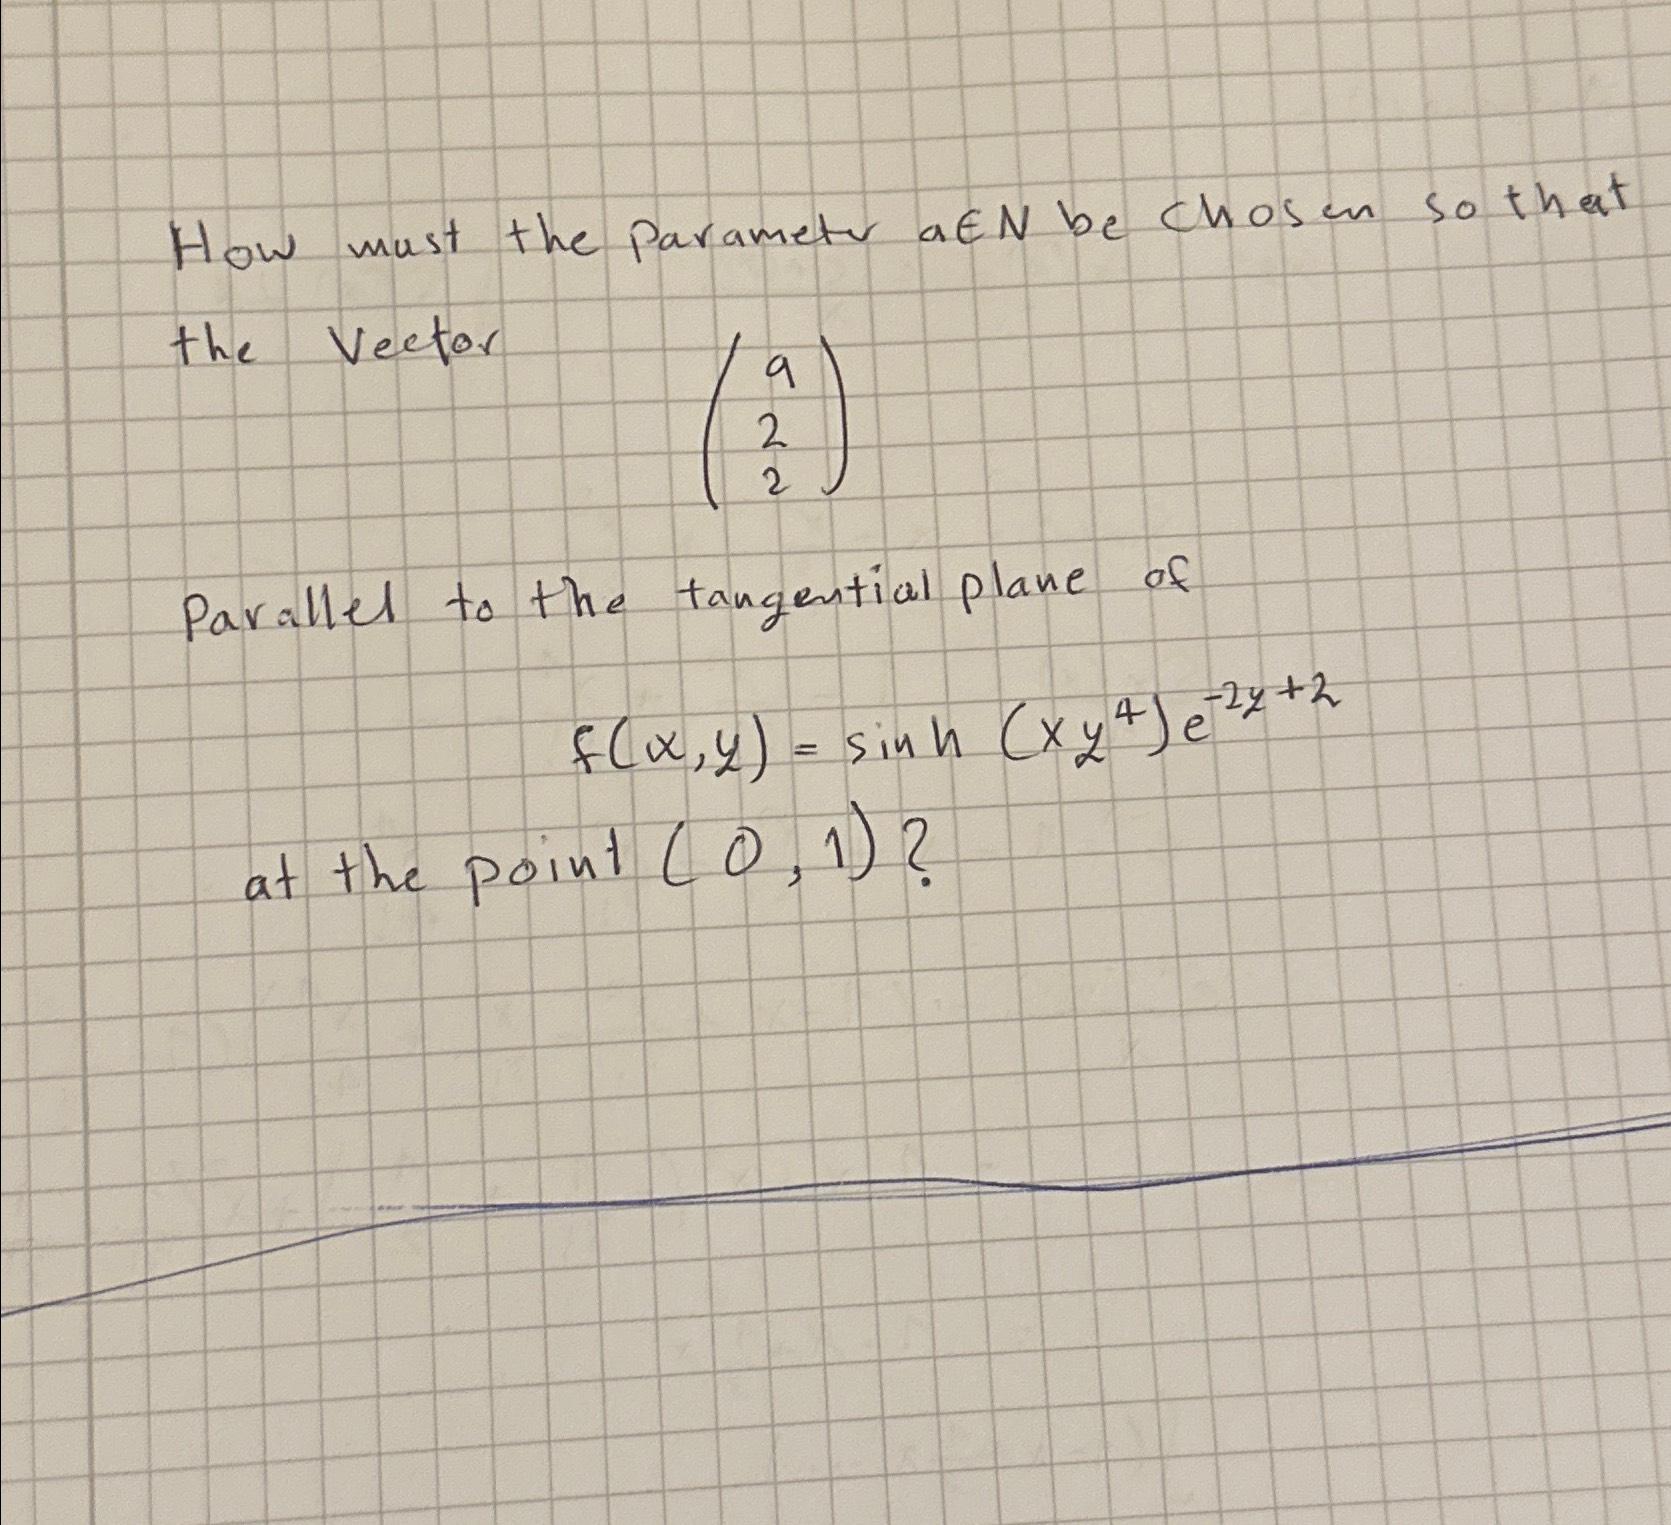 How must the parameter a∈N be chosen so that
the Vector
(a
2
2)
Parallel to the tangential plane of
f(x,y) = sinh (xy⁴)e⁻²ʸ⁺²
at the point (0,1)?